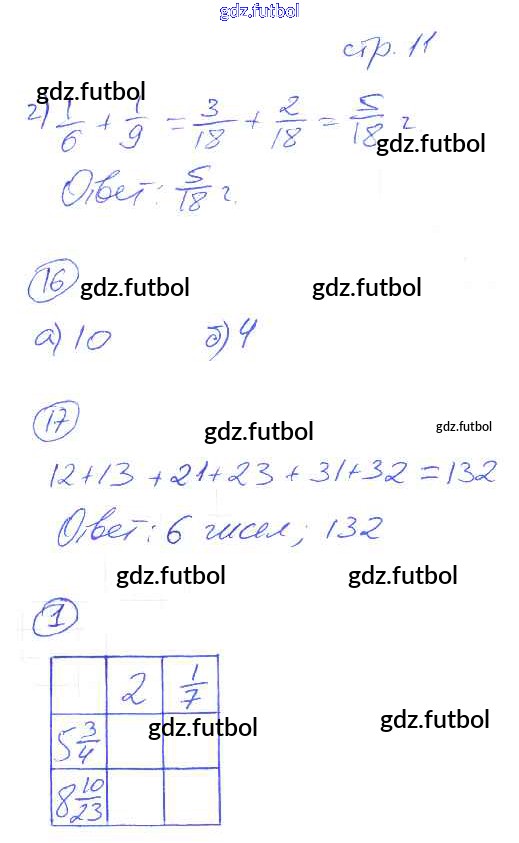 gdz.futbol
стр. 11
gdz.futbol
2) 1/6 + 1/9 = 3/18 + 2/18 = 5/18 г
gdz.futbol
Ответ: 5/18 г.
16
gdz.futbol gdz.futbol
а) 10 б) 4
17
gdz.futbol gdz.futbol
12+13+21+23+31+32=132
Ответ: 6 чисел; 132
gdz.futbol gdz.futbol
1
2 1/7
5 3/4
gdz.futbol gdz.futbol
8 10/23